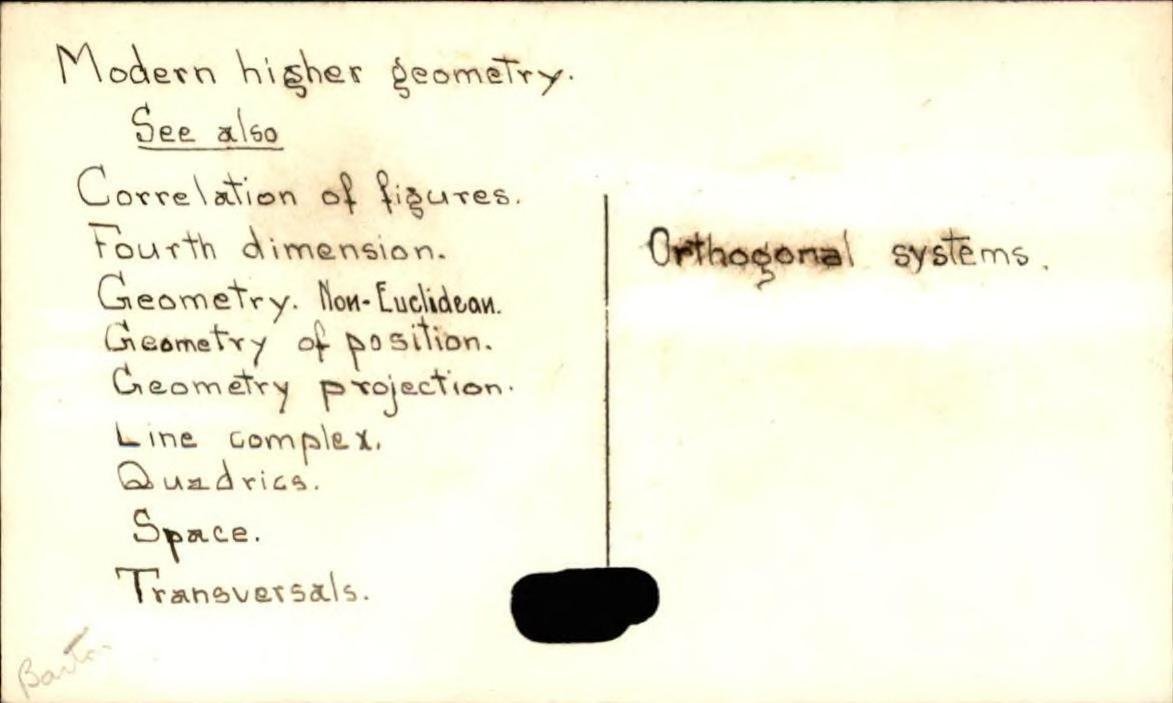 Modern higher geometry.
See also
Correlation of figures.
Fourth dimension.
Geometry. Non-Euclidean.
Geometry of position.
Geometry projection.
Line complex.
Quadrics.
Space.
Transversals.
Orthogonal systems.